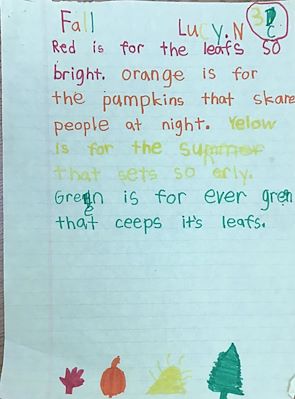 Fall Lucy.N
Red is for the leafs so
bright. orange is for
the pumpkins that skare
people at night. Yelow
is for the summer
that sets so erly.
Green is for ever gren
that ceeps it's leafs.